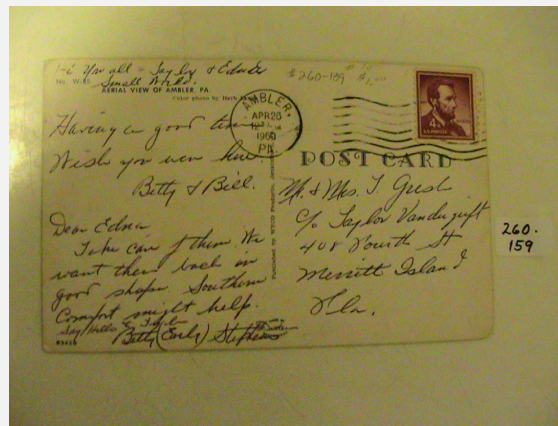 Hi You all - Taylor & Edna
Small World.
No. W-35
AERIAL VIEW OF AMBLER, PA.
Color photo by Herb
#260-159
$1.00
AMBLER,
APR 26
1960
PA.
4¢
U.S. POSTAGE
POST CARD
Having a good time
Wish you were here.
Betty & Bill.
Dear Edna,
Take care of them. We
want them back in
good shape. Southern
Comfort might help.
Say Hello to Taylor
Betty (Early) Stephens
Published by WYCO Products,
Mr. & Mrs. T.
c/o Taylor Vandegrift
408 Fourth St
Merritt Island
Fla.
260.
159